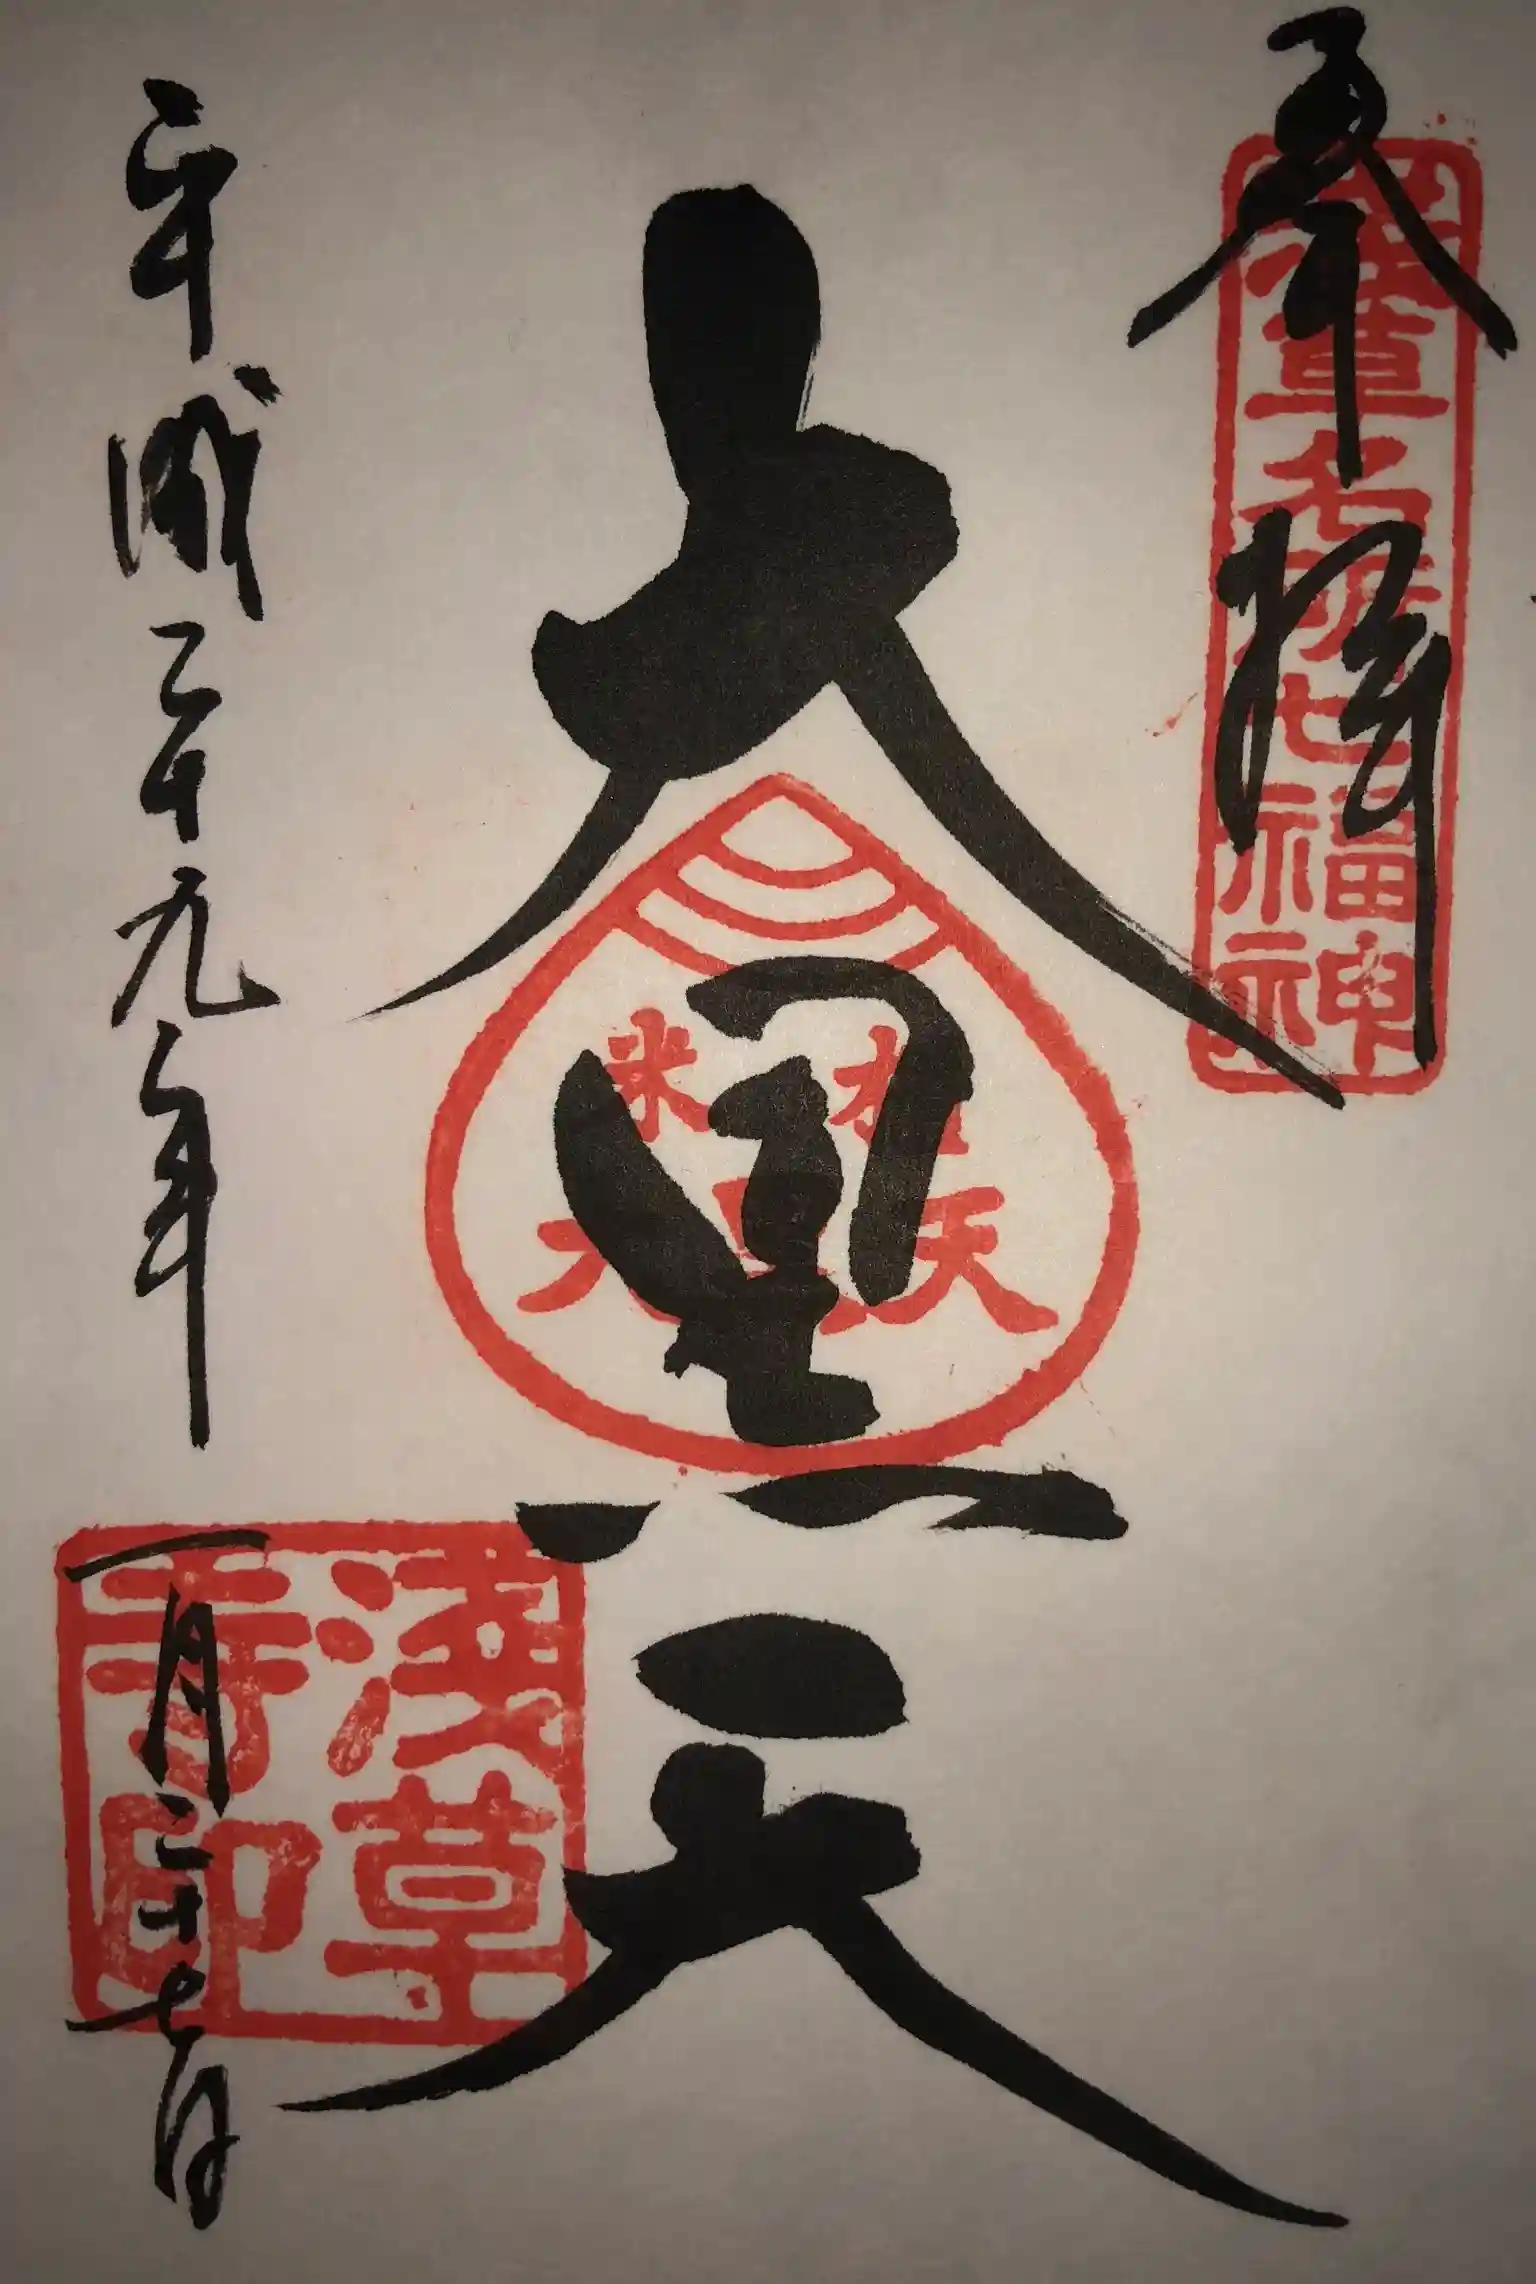 奉拝
浅草名所七福神
大黒天
米
大黒天
平成二十九年一月二十七日
浅草
寺印